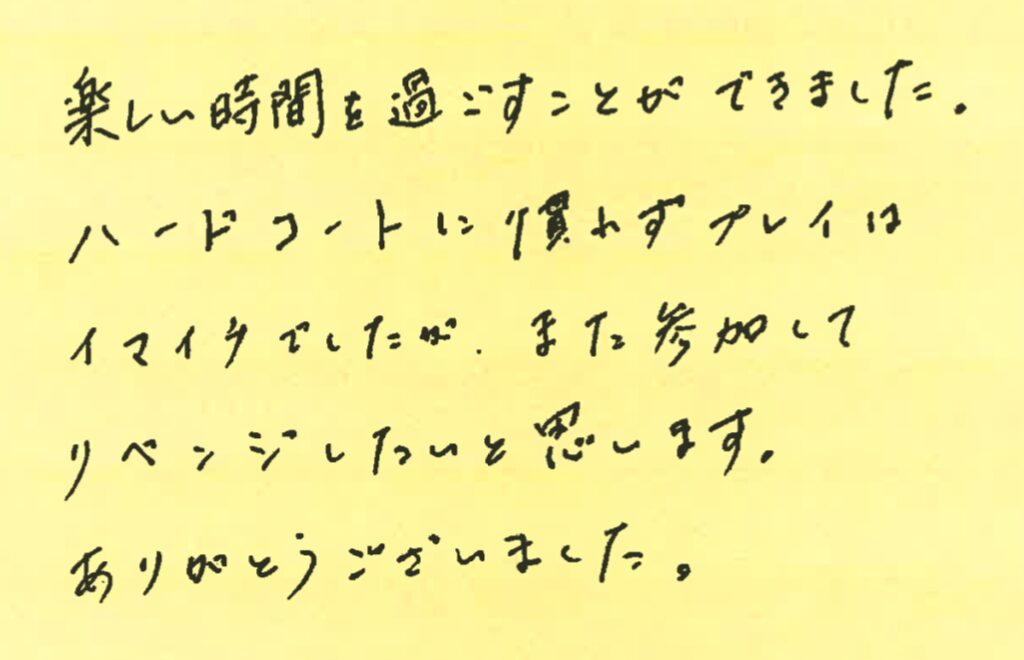 楽しい時間を過ごすことができました。
ハードコートに慣れずプレイは
イマイチでしたが、また参加して
リベンジしたいと思います。
ありがとうございました。